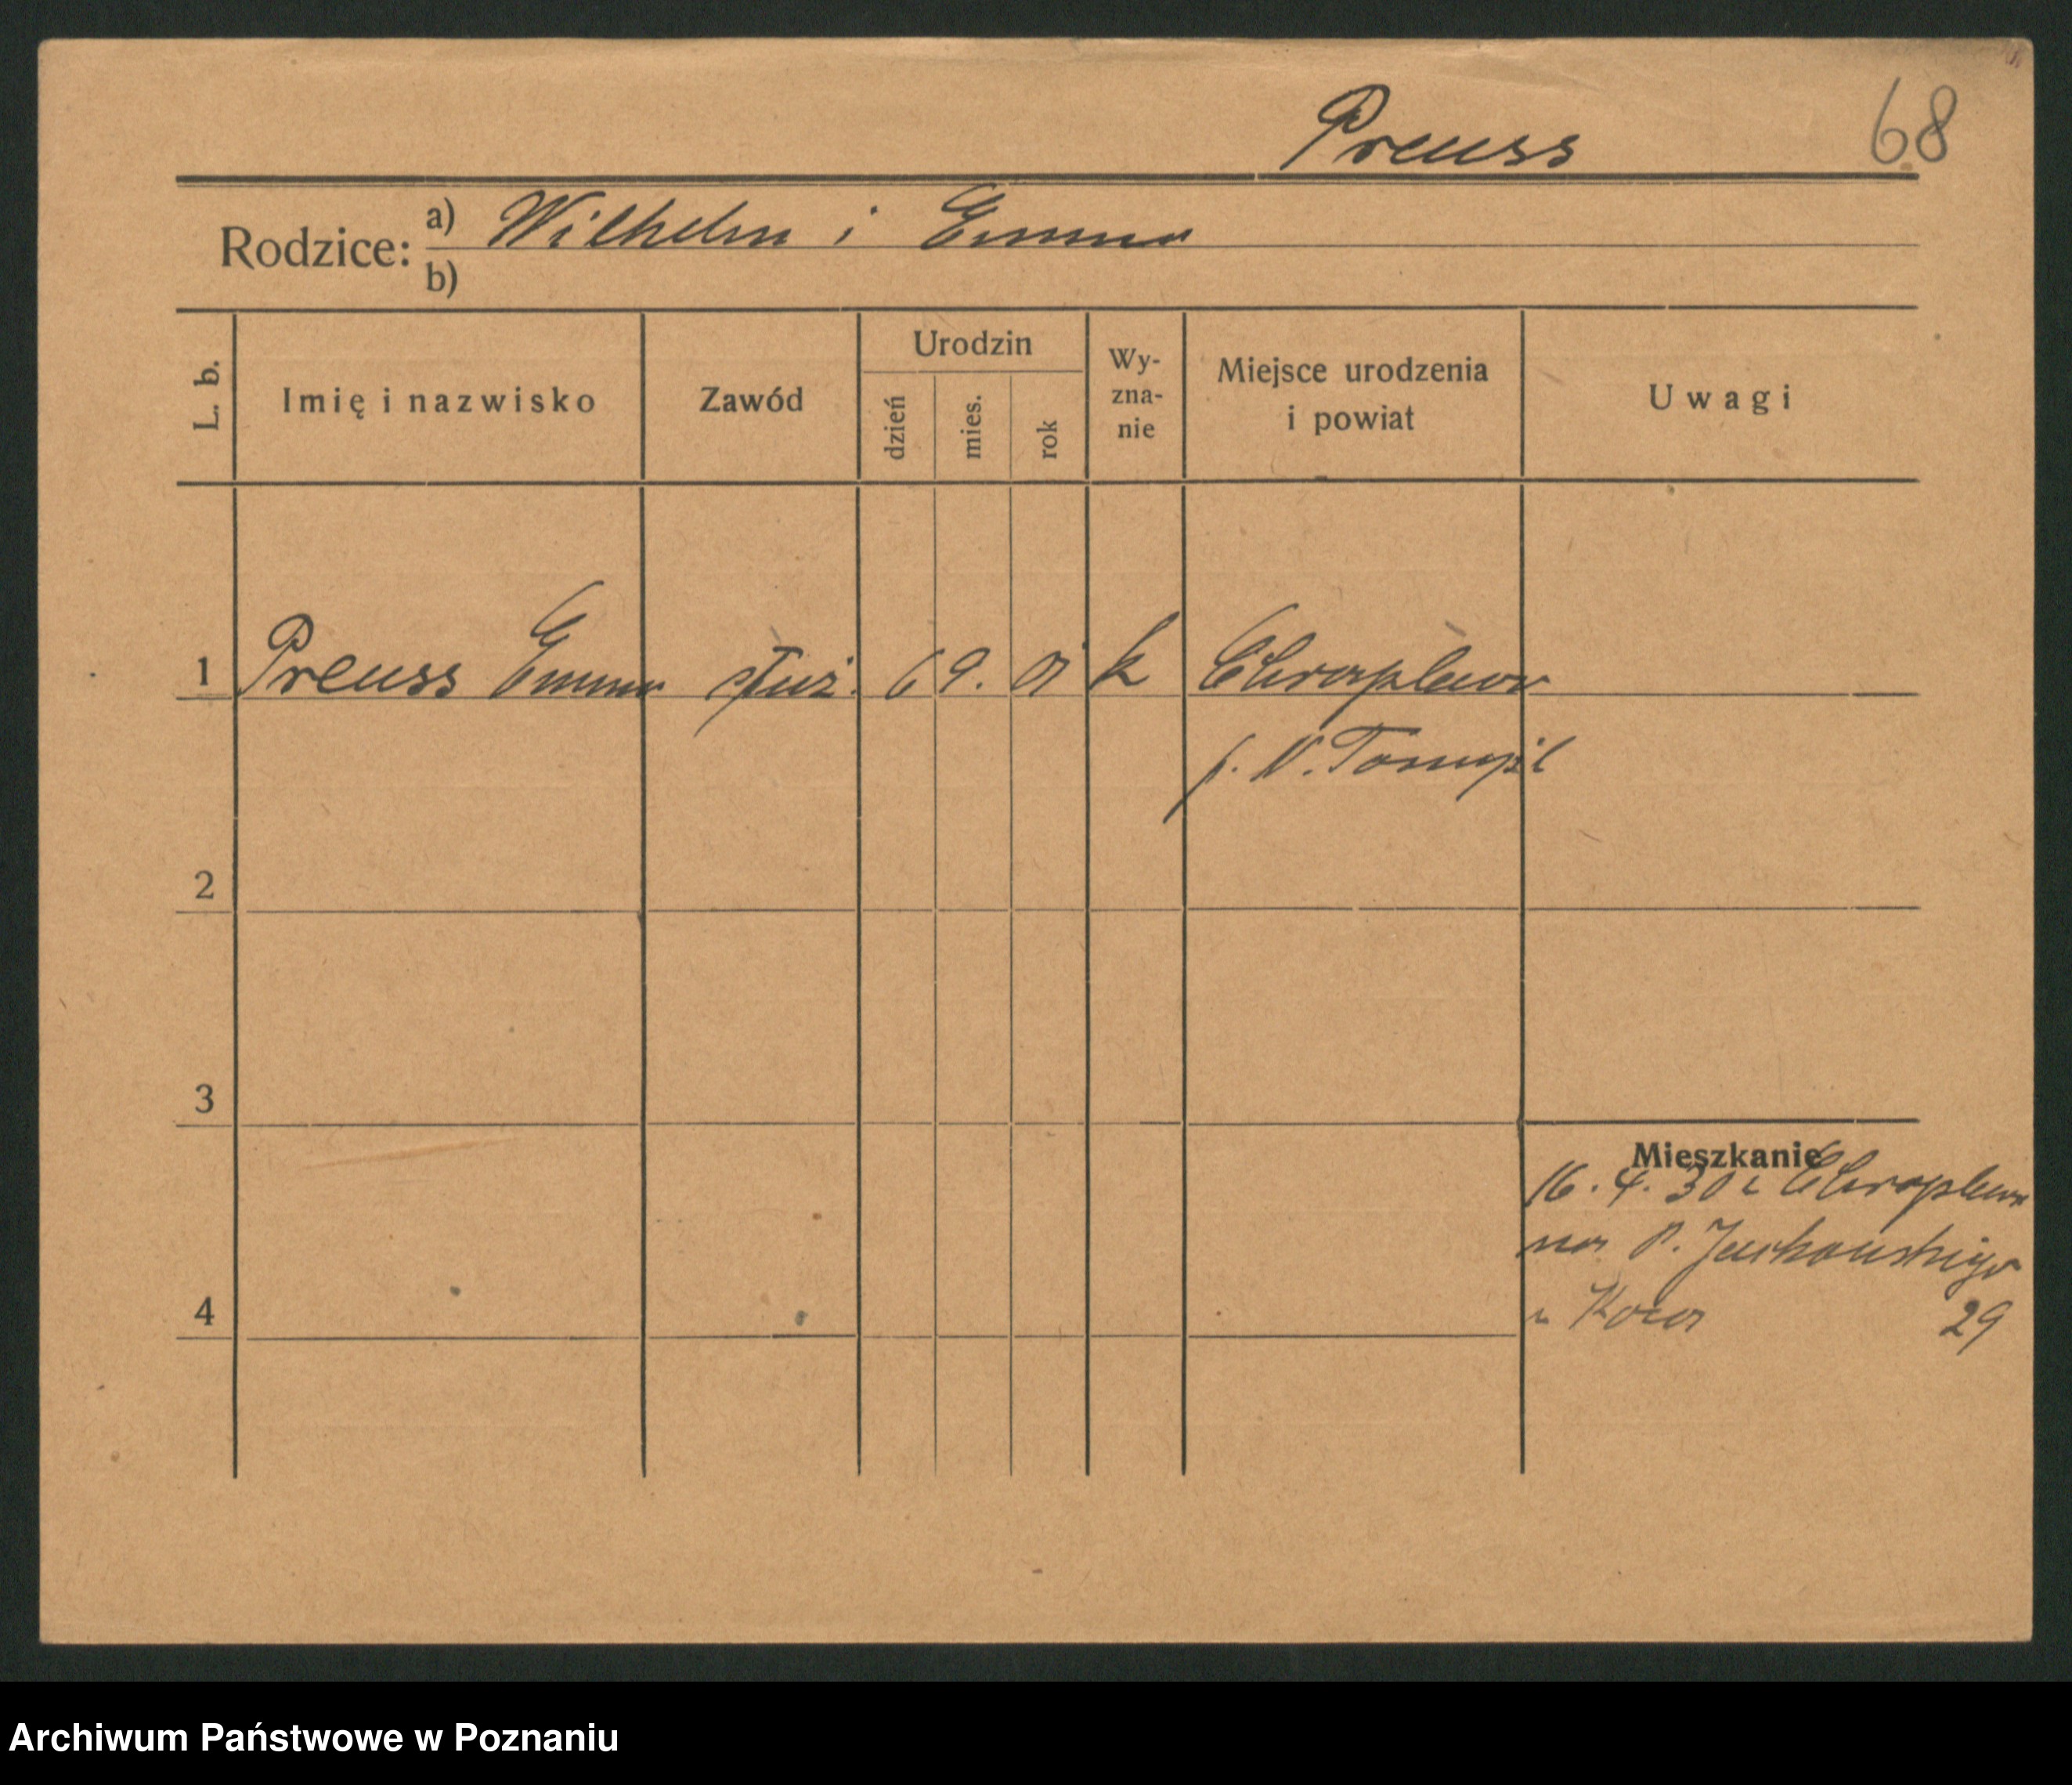 Preuss 68
Rodzice: a) Wilhelm i Emma
b)
L. b. Imię i nazwisko Zawód Urodzin dzień mies. rok Wy-zna-nie Miejsce urodzenia i powiat Uwagi
1 Preuss Emma służ. 6 9. 01 k Chraplewo
p. N. Tomyśl
2
3
Mieszkanie
16. 4. 30 z Chraplewa
na P.
4 29
Archiwum Państwowe w Poznaniu